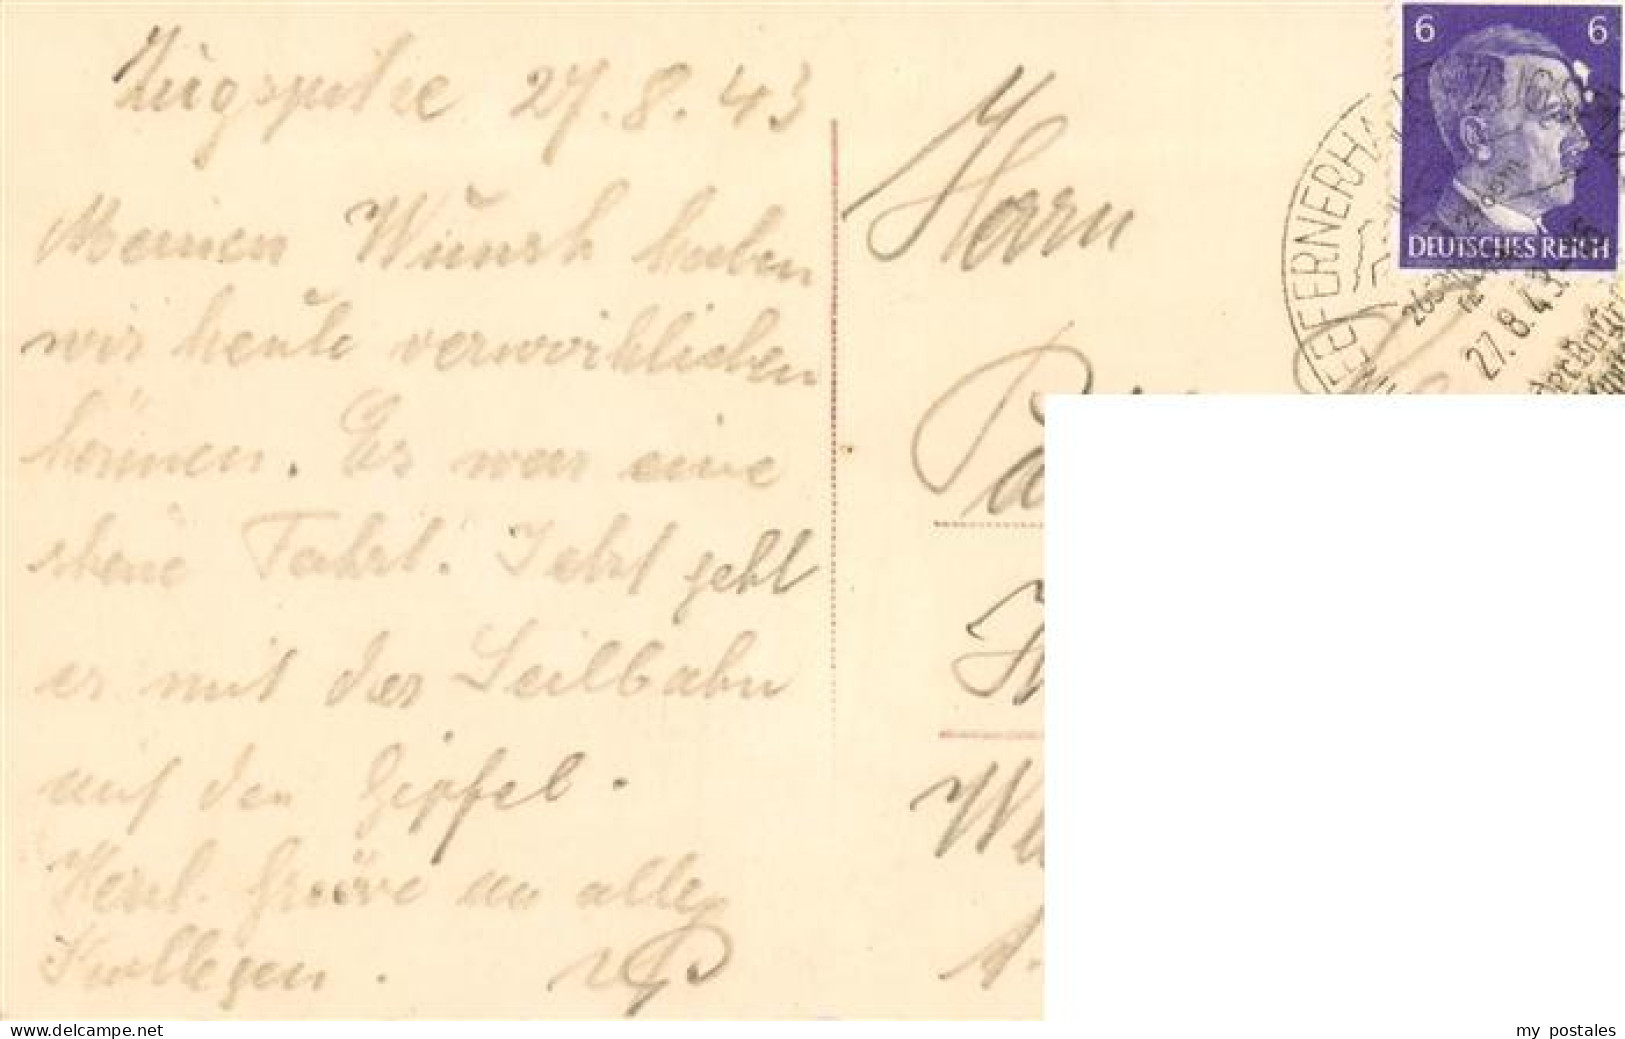 Zugspitze 27.8.43
Meinen Wunsch haben
wir heute verwirklichen
können. Es war eine
schöne Fahrt. Jetzt geht
es mit der Seilbahn
auf den Gipfel.
Herzl. Grüße an alle
Kollegen.
Herrn
6 6
DEUTSCHES REICH
27.8.43
www.delcampe.net
my postales